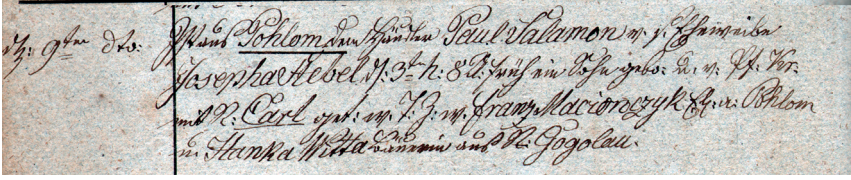 d: 9ten dto: Ist aus Pohlom dem Häusler Paul Salamon v. s. Eheweibe
Josepha Hebel d: 3t h: 8 U: früh ein Sohn gebo: u. v. Pf. Kr.
mit N: Carl get: w. T: Z: w. Franz Macionczyk Ez: a: Pohlom
u: Hanka Witta Bäuerin aus N: Gogolau.